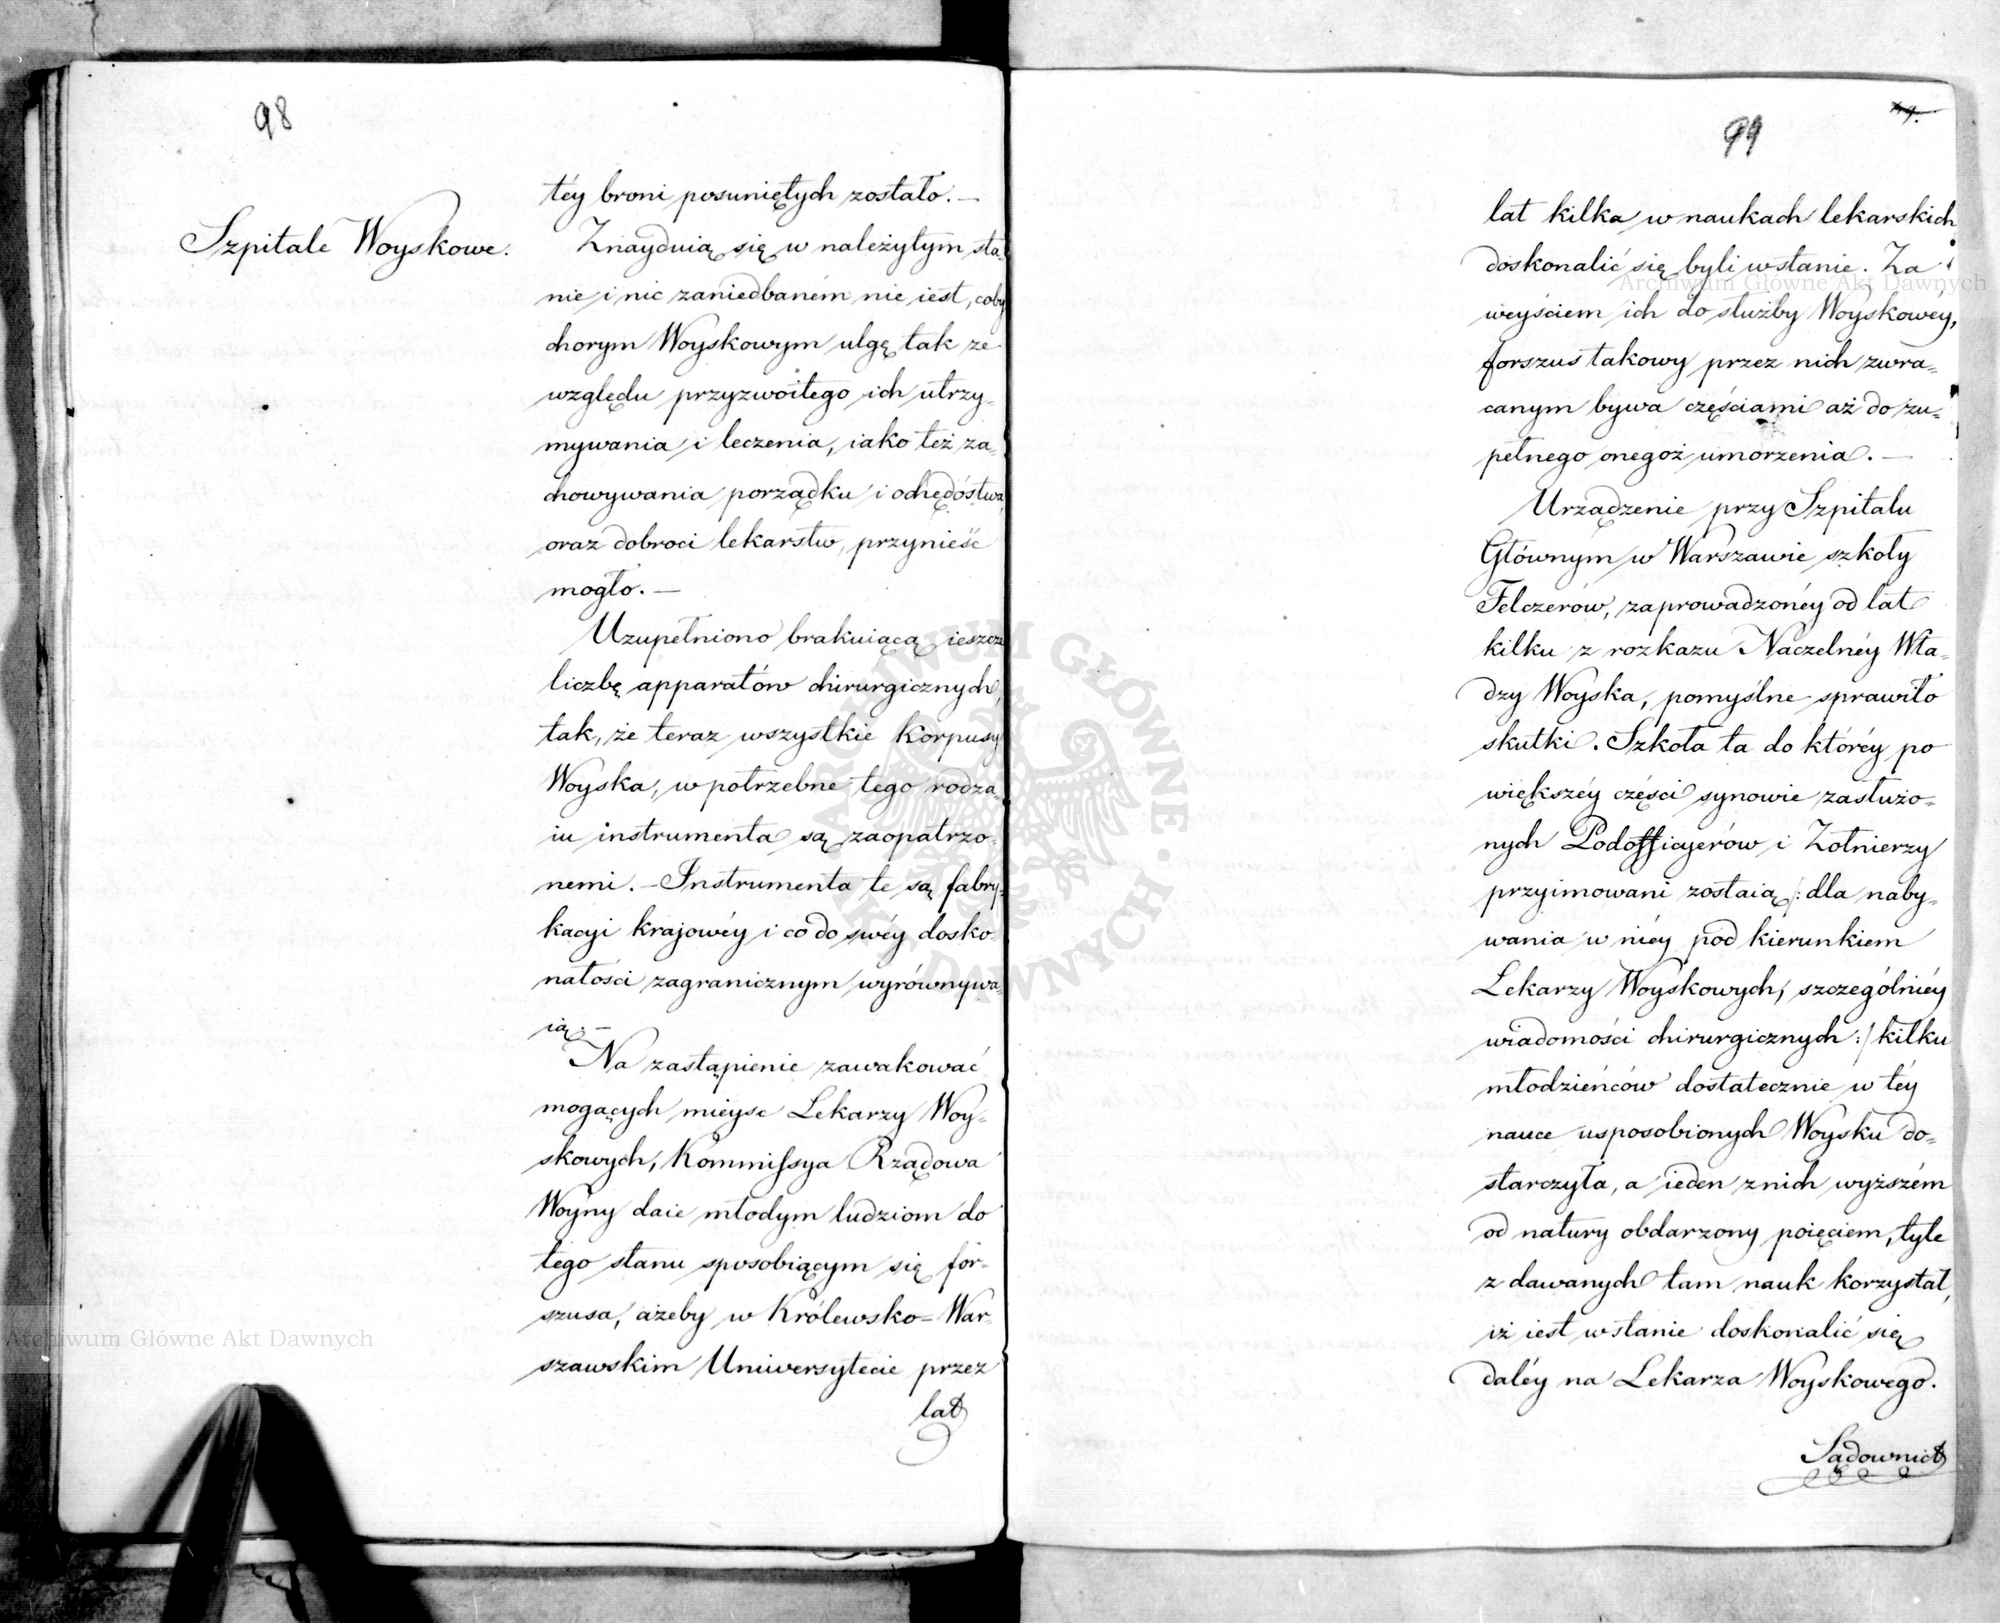 98
téy broni posuniętych zostało. —
Szpitale Woyskowe.
Znayduią się w należytym sta-
nie i nic zaniedbaném nie iest, coby
chorym Woyskowym ulgę tak ze
względu przyzwoitego ich utrzy-
mywania i leczenia, iako też za-
chowywania porządku i ochędóstwa,
oraz dobroci lekarstw, przynieść
mogło. —
Uzupełniono brakuiącą ieszcze
liczbę apparatów chirurgicznych,
tak, że teraz wszystkie Korpusy
Woyska, w potrzebne tego rodza-
iu instrumenta są zaopatrzo-
nemi. — Instrumenta te są fabry-
kacyi krajowéy i co do swéy dosko-
nałości zagranicznym wyrównywa-
ią. —
Na zastąpienie zawakować
mogących mieysc Lekarzy Woy-
skowych, Kommissya Rządowa
Woyny daie młodym ludziom do
tego stanu sposobiącym się for-
szusa, ażeby w Królewsko-War-
szawskim Uniwersytecie przez
lat
99
49.
lat kilka w naukach lekarskich
doskonalić się byli wstanie. Za
weyściem ich do służby Woyskowéy,
forszus takowy przez nich zwra-
canym bywa częściami aż do zu-
pełnego onegoż umorzenia. —
Urządzenie przy Szpitalu
Głównym w Warszawie szkoły
Felczerów, zaprowadzonéy od lat
kilku z rozkazu Naczelnéy Wła-
dzy Woyska, pomyślne sprawiło
skutki. Szkoła ta do któréy po
większéy części synowie zasłużo-
nych Podofficyerów i Żołnierzy
przyimowani zostaią /: dla naby-
wania w niéy pod kierunkiem
Lekarzy Woyskowych, szczególniéy
wiadomości chirurgicznych :/ kilku
młodzieńców dostatecznie w téy
nauce usposobionych Woysku do-
starczyła, a ieden z nich wyższém
od natury obdarzony poięciem, tyle
z dawanych tam nauk korzystał,
iż iest wstanie doskonalić się
daléy na Lekarza Woyskowego.
Sądownict
Archiwum Główne Akt Dawnych
Archiwum Główne Akt Dawnych
ARCHIWUM GŁÓWNE AKT DAWNYCH